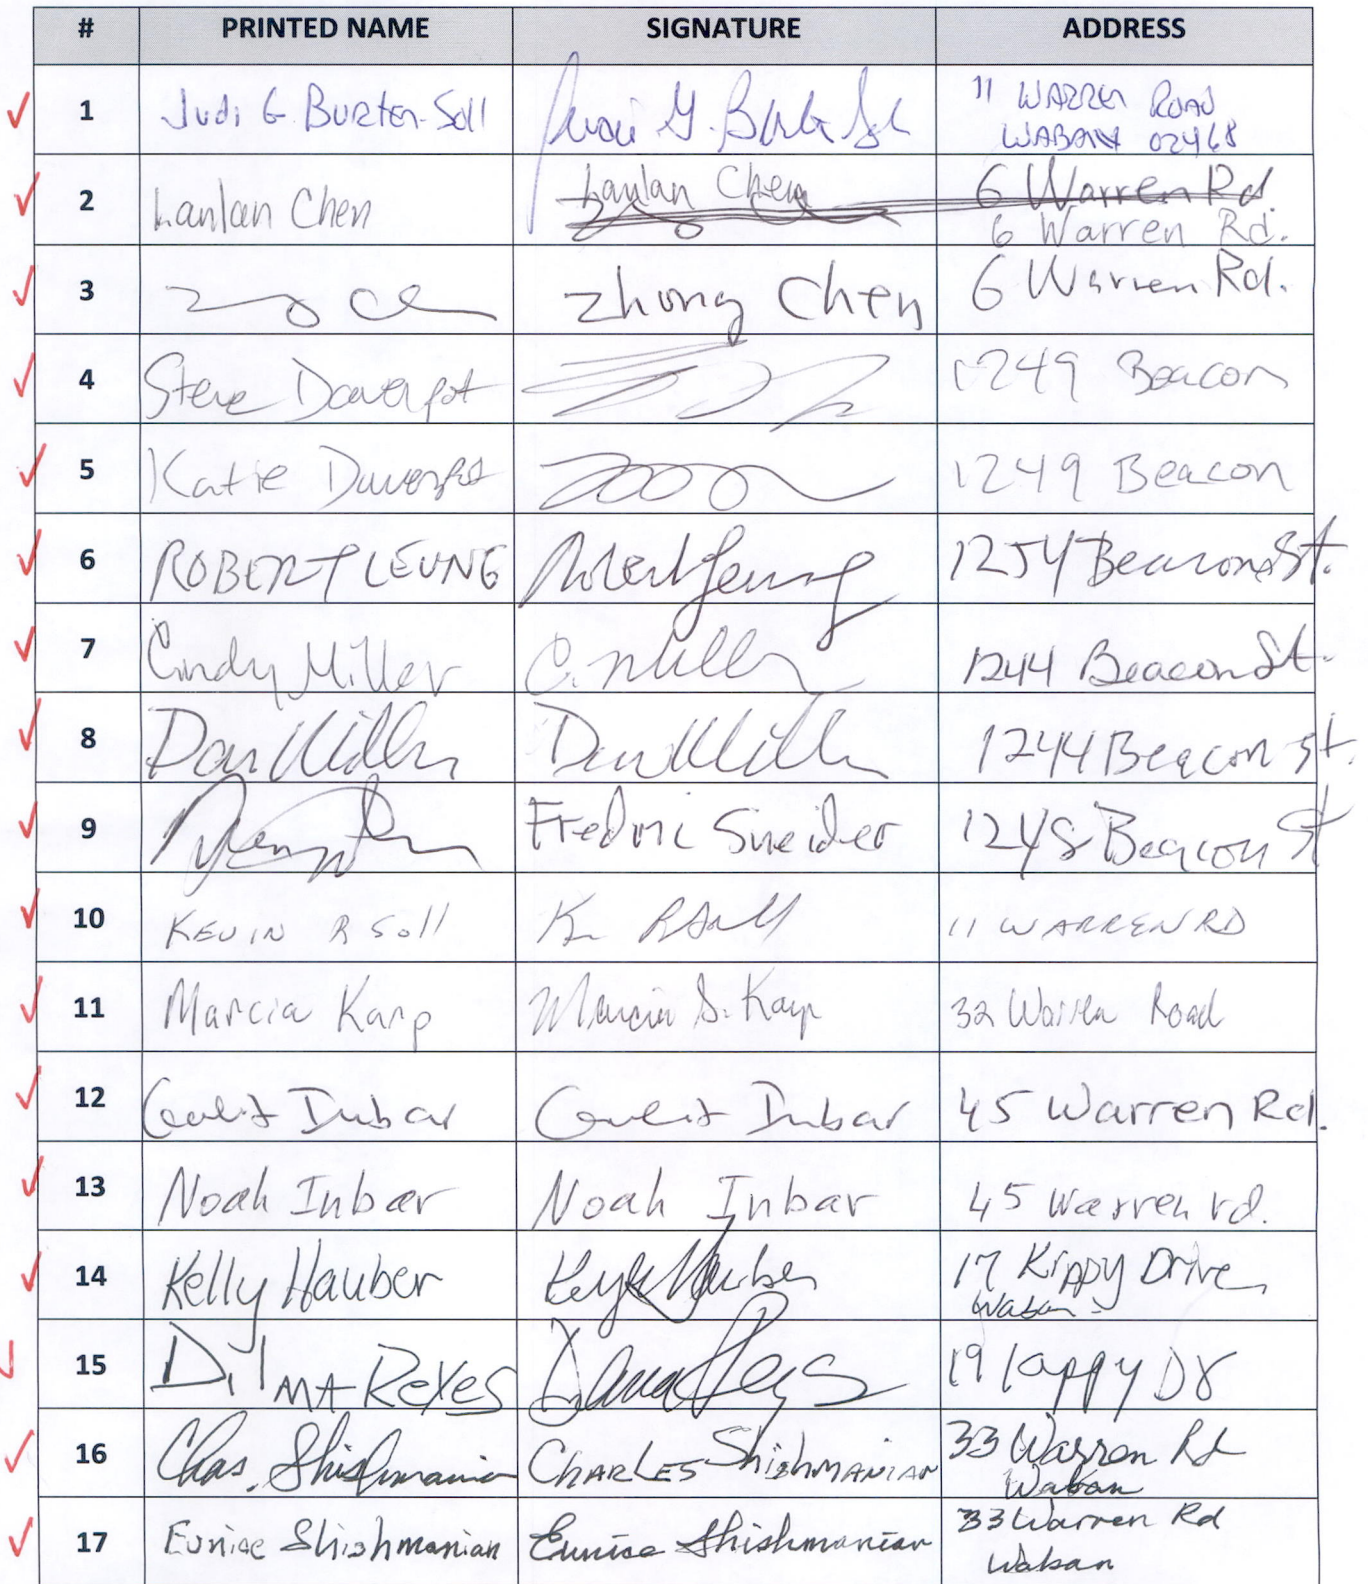 # PRINTED NAME SIGNATURE ADDRESS
1 Judi G. Burton-Soll 11 WARREN ROAD
WABAN 02468
2 Lanlan Chen Lanlan Chen 6 Warren Rd.
6 Warren Rd.
3 Zhong Chen 6 Warren Rd.
4 Steve 1249 Beacon
5 Katie 1249 Beacon
6 ROBERT LEUNG Robert Leung 1254 Beacon St.
7 Cindy Miller C. Miller 1244 Beacon St.
8 Dan Miller Dan Miller 1244 Beacon St.
9 Fredric Sneider 1248 Beacon St
10 KEVIN R Soll 11 WARREN RD
11 Marcia Karp Marcia S. Karp 32 Warren Road
12 Inbar Inbar 45 Warren Rd.
13 Noah Inbar Noah Inbar 45 Warren rd.
14 Kelly Hauber Kelly Hauber 17 Kappy Drive
Waban
15 Dilma Reyes 19 Kappy Dr
16 Chas. Shishmanian CHARLES SHISHMANIAN 33 Warren Rd
Waban
17 Eunice Shishmanian Eunice Shishmanian 33 Warren Rd
Waban